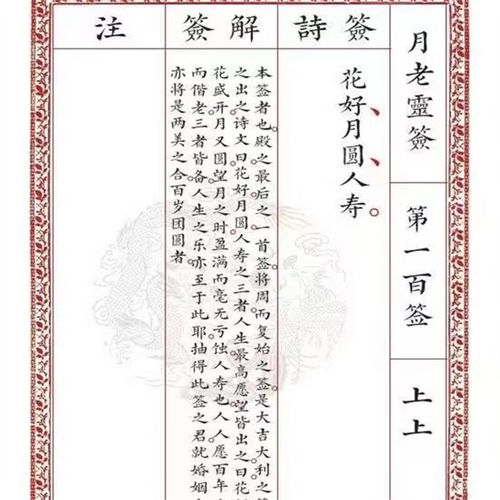 月老靈簽
第一百签
上上
簽詩
花好、月圆、人寿。
解簽
本签者也。殿之最后之一首签。将周而复始之签。是大吉大利之
之出之诗文曰。花好月圆人寿之三者人生最高愿望。皆出之曰。花
花盛开。月又圆。望月之时盈满而毫无亏蚀。人寿也。人人愿百年
而偕老。三者皆备。人生之乐亦至于此耶。抽得此签之君。就婚姻
亦将是两美之合。百岁团圆者。
注